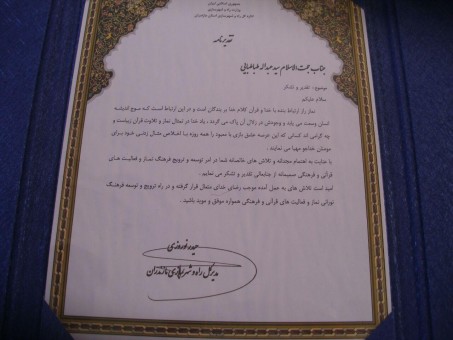 جمهوری اسلامی ایران
وزارت راه و شهرسازی
اداره کل راه و شهرسازی استان مازندران
تقدیرنامه
جناب حجت الاسلام سید عبداله طباطبایی
موضوع: تقدیر و تشکر
سلام علیکم
نماز راز ارتباط بنده با خدا و قرآن کلام خدا بر بندگان است و در این ارتباط است که روح اندیشه
انسان وسعت می یابد و وجودش در زلال آن پاک می گردد . یاد خدا در نماز و تلاوت قرآن زیباست و
چه گرامی اند کسانی که این عرصه عشق بازی با معبود را همه روزه با اخلاص مثال زدنی خود برای
مومنان خداجو مهیا می نمایند .
با عنایت به اهتمام مجدانه و تلاش های خالصانه شما در امر توسعه و ترویج فرهنگ نماز و فعالیت های
قرآنی و فرهنگی صمیمانه از جنابعالی تقدیر و تشکر می نمایم .
امید است تلاش های به عمل آمده موجب رضای خدای متعال قرار گرفته و در راه ترویج و توسعه فرهنگ
نورانی نماز و فعالیت های قرآنی و فرهنگی همواره موفق و موید باشید .
حیدر نوروزی
مدیرکل راه و شهرسازی مازندران